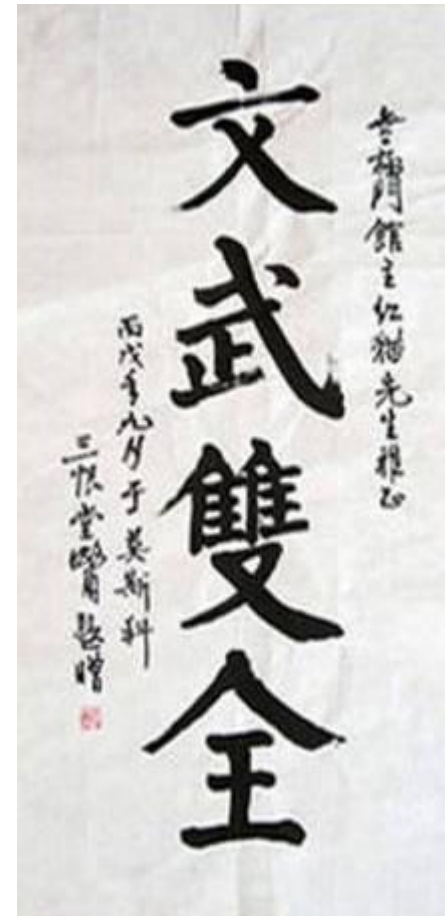 館主紅猫先生雅正
文武雙全
丙戌年九月于莫斯科
三恨堂贈